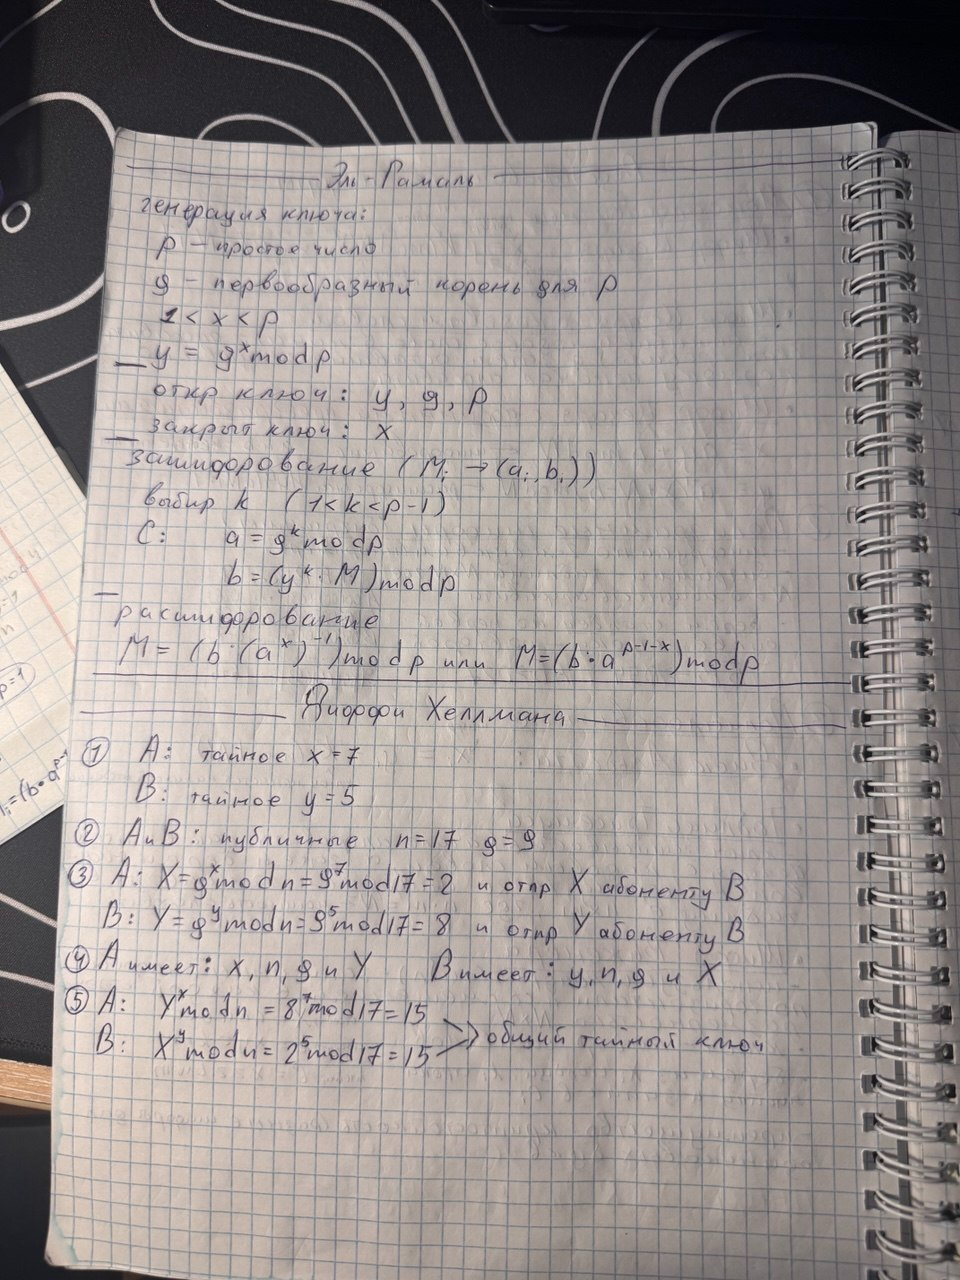 Эль-Гамаль
генерация ключа:
p - простое число
g - первообразный корень для p
1 < x < p
y = gˣ mod p
откр ключ: y, g, p
закрыт ключ: x
зашифрование (Mᵢ → (aᵢ, bᵢ))
выбир k (1 < k < p-1)
C: a = gᵏ mod p
b = (yᵏ · M) mod p
расшифрование
M = (b · (aˣ)⁻¹) mod p или M = (b · a^(p-1-x)) mod p
Диффи Хеллмана
① A: тайное x = 7
B: тайное y = 5
② A и B: публичные n = 17 g = 9
③ A: X = gˣ mod n = 9⁷ mod 17 = 2 и отпр X абоненту B
B: Y = gʸ mod n = 9⁵ mod 17 = 8 и отпр Y абоненту B
④ A имеет: x, n, g и Y B имеет: y, n, g и X
⑤ A: Yˣ mod n = 8⁷ mod 17 = 15
B: Xʸ mod n = 2⁵ mod 17 = 15
общий тайный ключ